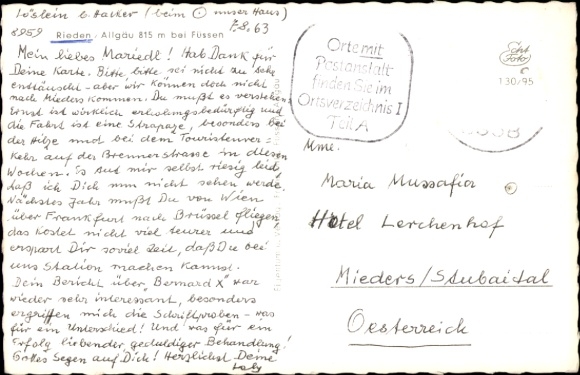 Löslein b. Hacker (beim ⊙ unser Haus)
7.8.63
8959 Rieden, Allgäu 815 m bei Füssen
Mein liebes Mariedl! Hab Dank für
Deine Karte. Bitte, bitte, sei nicht zu sehr
enttäuscht - aber wir können doch nicht
nach Mieders kommen. Du mußt es verstehen
Ernst ist wirklich erholungsbedürftig und
die Fahrt ist eine Strapaze, besonders bei
der Hitze und bei dem Touristenver-
kehr auf der Brennerstrasse in diesen
Wochen. Es tut mir selbst riesig leid,
daß ich Dich nun nicht sehen werde.
Nächstes Jahr mußt Du von Wien
über Frankfurt nach Brüssel fliegen
das kostet nicht viel teurer und
erspart Dir soviel Zeit, daß Du bei
uns Station machen kannst.
Dein Bericht über "Bernard X" war
wieder sehr interessant, besonders
ergriffen mich die Schriftproben - was
für ein Unterschied! Und was für ein
Erfolg liebender, geduldiger Behandlung!
Gottes Segen auf Dich! Herzlichst Deine
Orte mit
Postanstalt
finden Sie im
Ortsverzeichnis I
Teil A
Echt
Foto
130/95
Mme.
Maria Mussafia
Hotel Lerchenhof
Mieders/Stubaital
Oesterreich